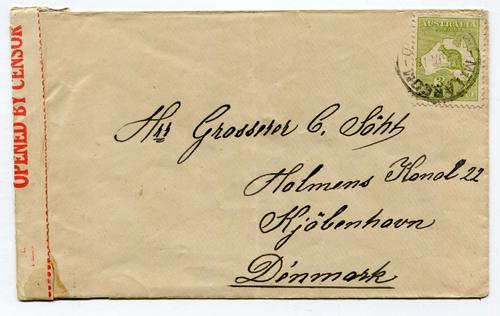 OPENED BY CENSOR
AUSTRALIA
Hrr Grosserer C. Söht
Holmens Kanal 22
Kjöbenhavn
Denmark